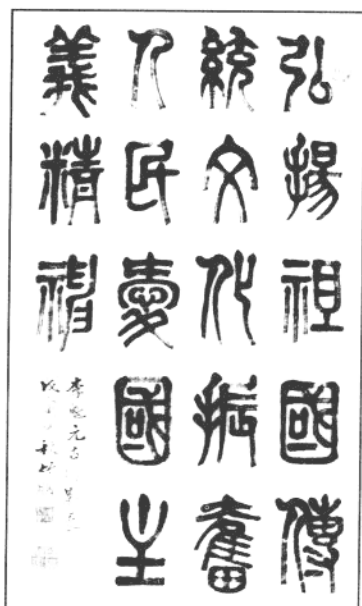 弘揚祖國傳
統文化振奮
人民愛國主
義精神